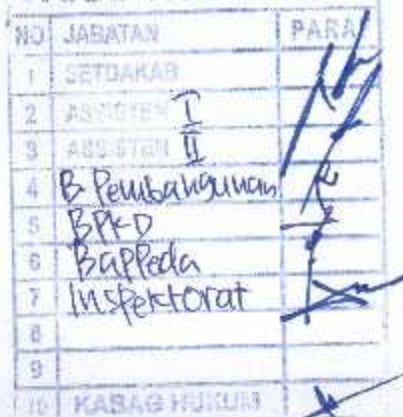 NO JABATAN PARA
1 SETDAKAB
2 ASSISTEN I
3 ASSISTEN II
4 B Pembangunan
5 BPKD
6 Bappeda
7 Inspektorat
8
9
10 KABAG HUKUM